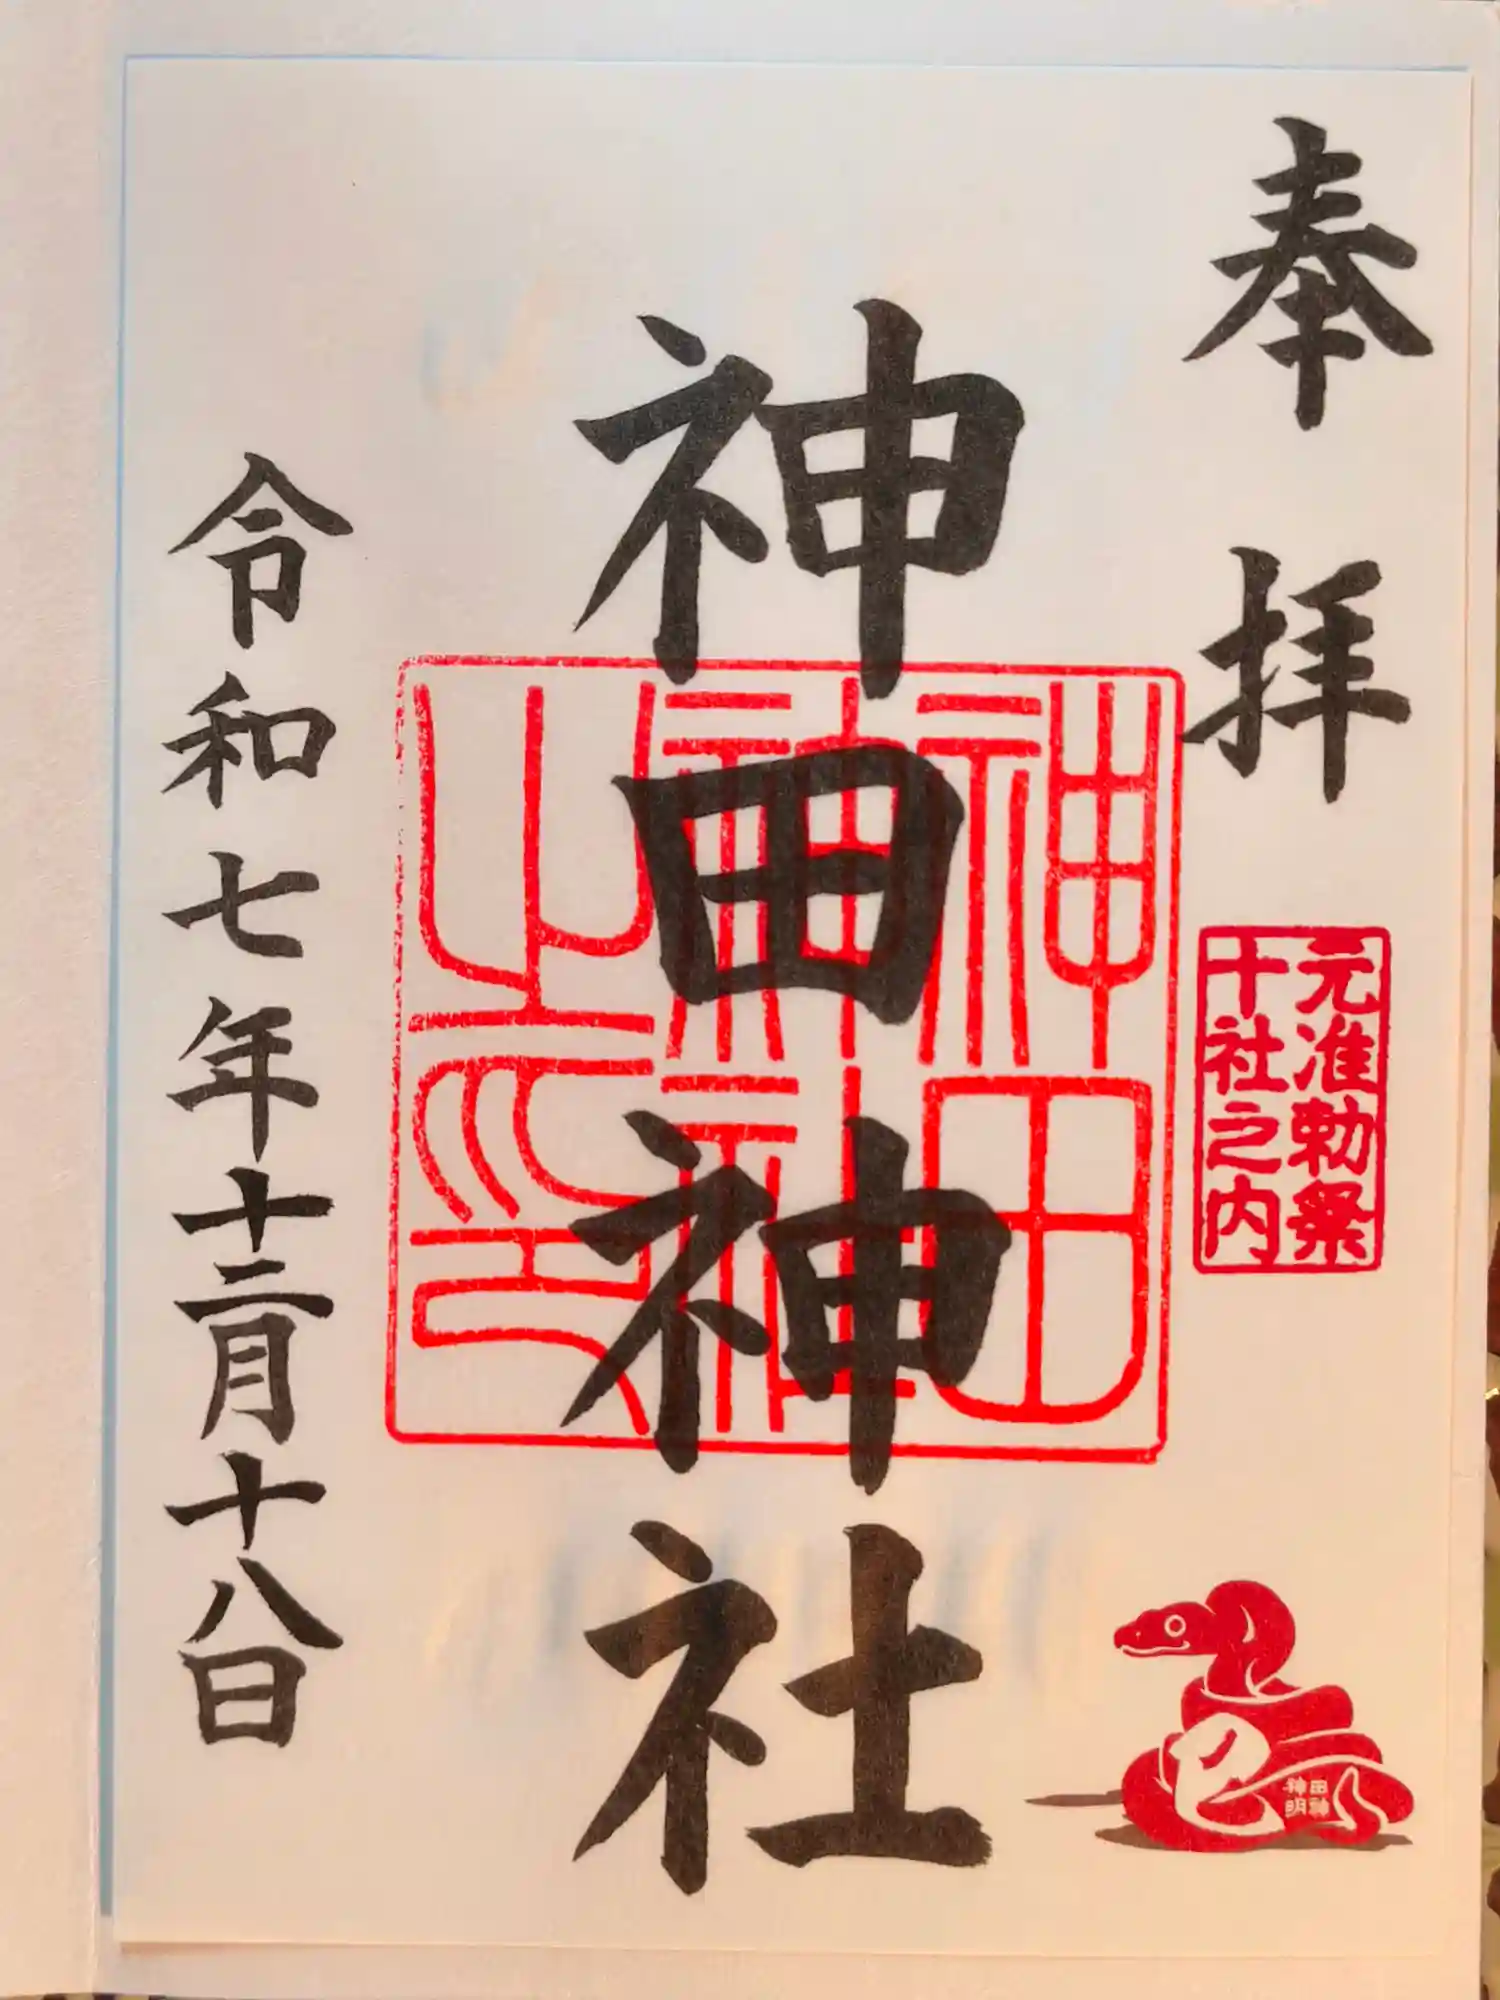 奉拝
元准勅祭
十社之内
巳
神田
神明
神田神社
神田
神社
之印
令和七年十二月十八日